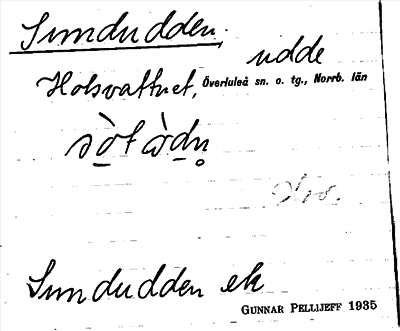 Simdudden, udde
Holsvattnet, Överluleå sn. o. tg., Norrb. län
Simdudden ek
GUNNAR PELLIJEFF 1935